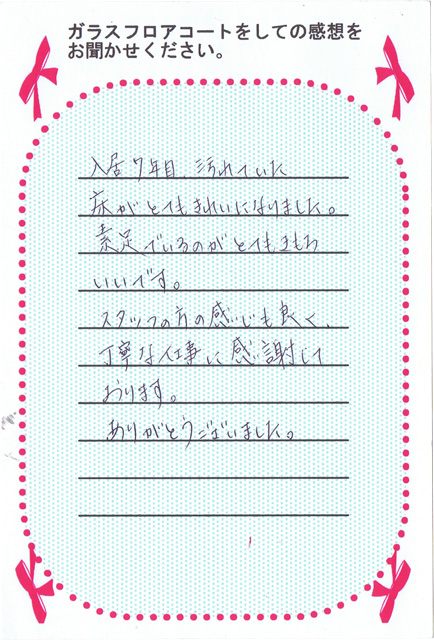 ガラスフロアコートをしての感想を
お聞かせください。
入居7年目、汚れていた
床がとてもきれいになりました。
素足でいるのがとてもきもち
いいです。
スタッフの方の感じも良く、
丁寧な仕事に感謝して
おります。
ありがとうございました。